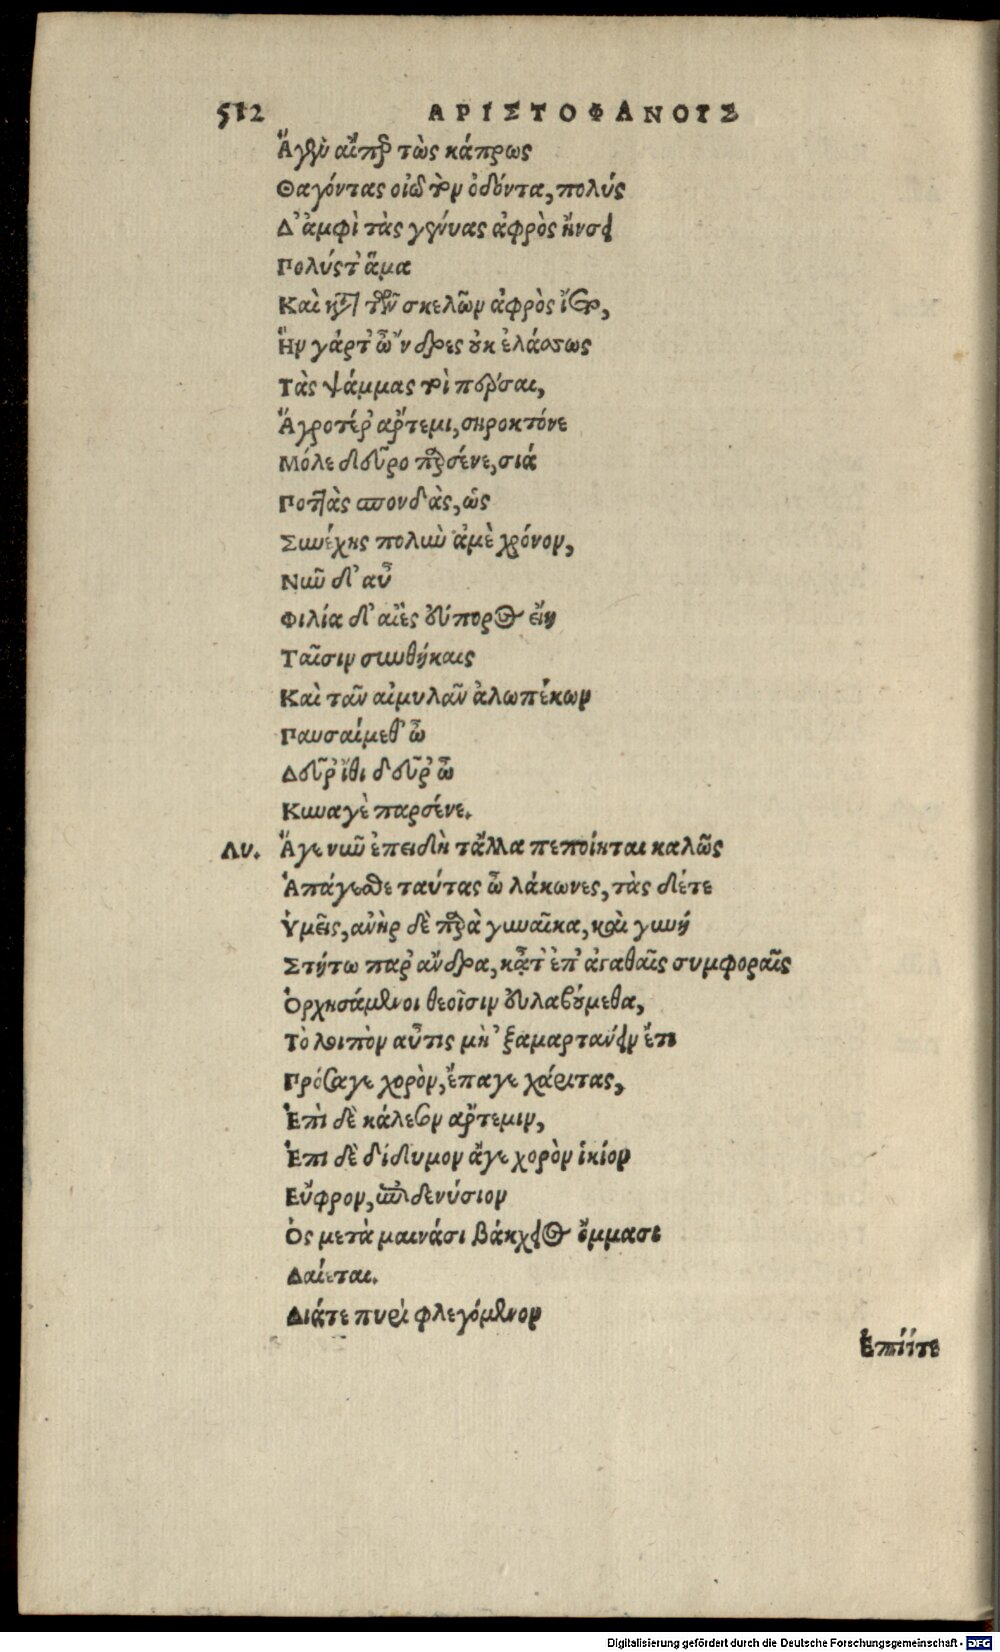 512 ΑΡΙΣΤΟΦΑΝΟΥΣ
Ἄγεν ἅπερ τὼς κάπρως
Θαγόντας οἰῶ τὸν ὀδόντα, πολύς
Δ' ἀμφὶ τὰς γένυας ἀφρὸς ἤνσει
Πολύς τ' ἅμα
Καὶ κατὰ τῶν σκελῶν ἀφρὸς ἵετο,
Ἦν γάρ τ' ὦ 'νδρες οὐκ ἐλάσσως
Τὰς ψάμμας τοὶ πέρσαι,
Ἀγροτέρ' ἄρτεμι, σηροκτόνε
Μόλε δεῦρο παρσένε, σιά
Ποττὰς σπονδὰς, ὡς
Συνέχης πολὺν ἀμὲ χρόνον,
Νῦν δ' αὖ
Φιλία δ' αἰὲς εὔπορος εἴη
Ταῖσιν συνθήκαις
Καὶ τᾶν αἱμυλᾶν ἀλωπέκων
Παυσαίμεθ' ὦ
Δεῦρ' ἴθι δεῦρ' ὦ
Κυναγὲ παρσένε.
Λυ. Ἄγε νῦν ἐπειδὴ τἄλλα πεποίηται καλῶς
Ἀπάγεσθε ταύτας ὦ λάκωνες, τὰς δέτε
Ὑμεῖς, ἀνὴρ δὲ παρὰ γυναῖκα, καὶ γυνή
Στήτω παρ' ἄνδρα, κᾆτ' ἐπ' ἀγαθαῖς συμφοραῖς
Ὀρχησάμενοι θεοῖσιν εὐλαβούμεθα,
Τὸ λοιπὸν αὖτις μὴ 'ξαμαρτανεῖν ἔτι
Πρόσαγε χορὸν, ἔπαγε χάριτας,
Ἐπὶ δὲ κάλεσον ἄρτεμιν,
Ἐπὶ δὲ δίδυμον ἄγε χορὸν ἱκίον
Εὔφρον, ἐπὶ δὲ νύσιον
Ὃς μετὰ μαινάσι βάκχειος ὄμμασι
Δαίεται.
Διάτε πυρὶ φλεγόμενον
Ἐπίτε
Digitalisierung gefördert durch die Deutsche Forschungsgemeinschaft - DFG